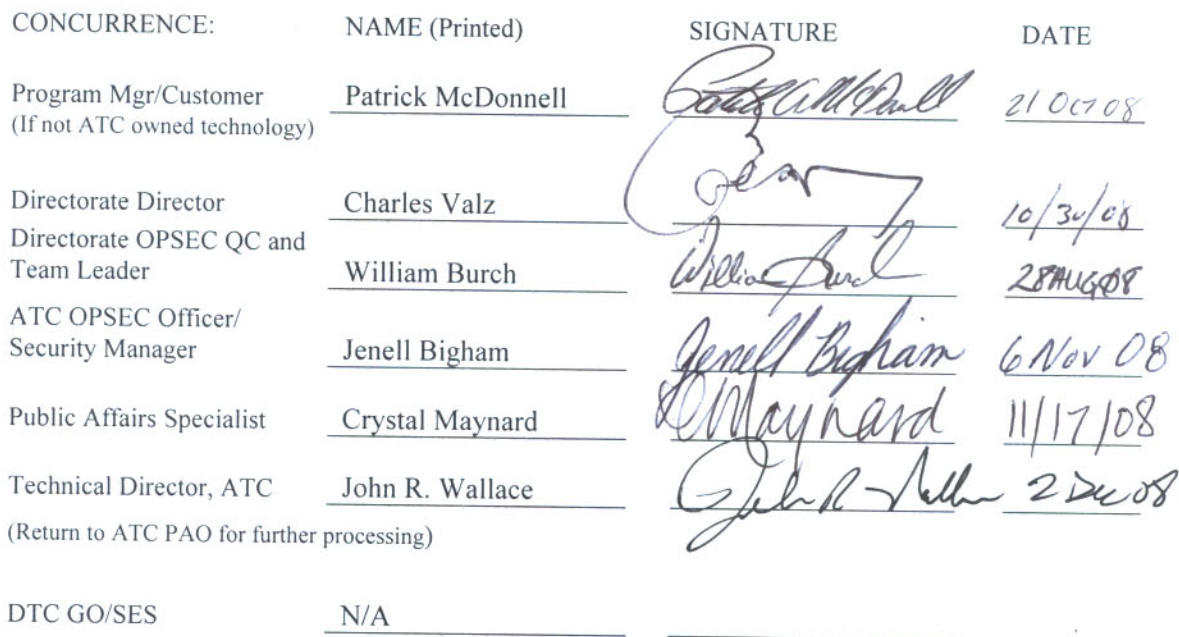 CONCURRENCE: NAME (Printed) SIGNATURE DATE
Program Mgr/Customer Patrick McDonnell 21 Oct 08
(If not ATC owned technology)
Directorate Director Charles Valz 10/30/08
Directorate OPSEC QC and
Team Leader William Burch William Burch 28AUG08
ATC OPSEC Officer/
Security Manager Jenell Bigham Jenell Bigham 6 Nov 08
Public Affairs Specialist Crystal Maynard CMaynard 11/17/08
Technical Director, ATC John R. Wallace John R Wallace 2 Dec 08
(Return to ATC PAO for further processing)
DTC GO/SES N/A